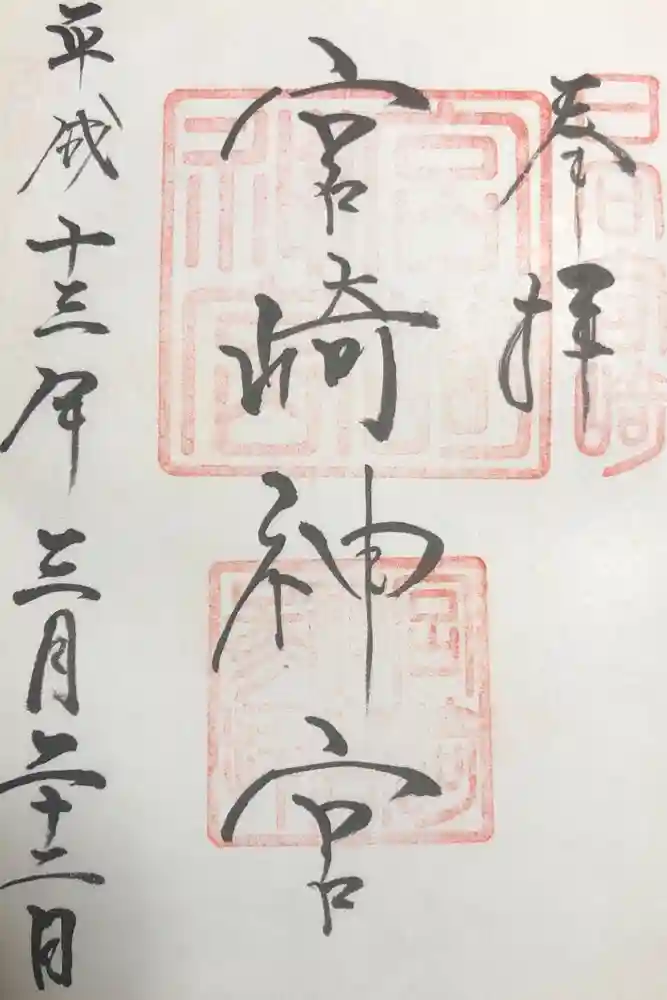 奉拝
宮崎神宮
平成十三年三月二十二日